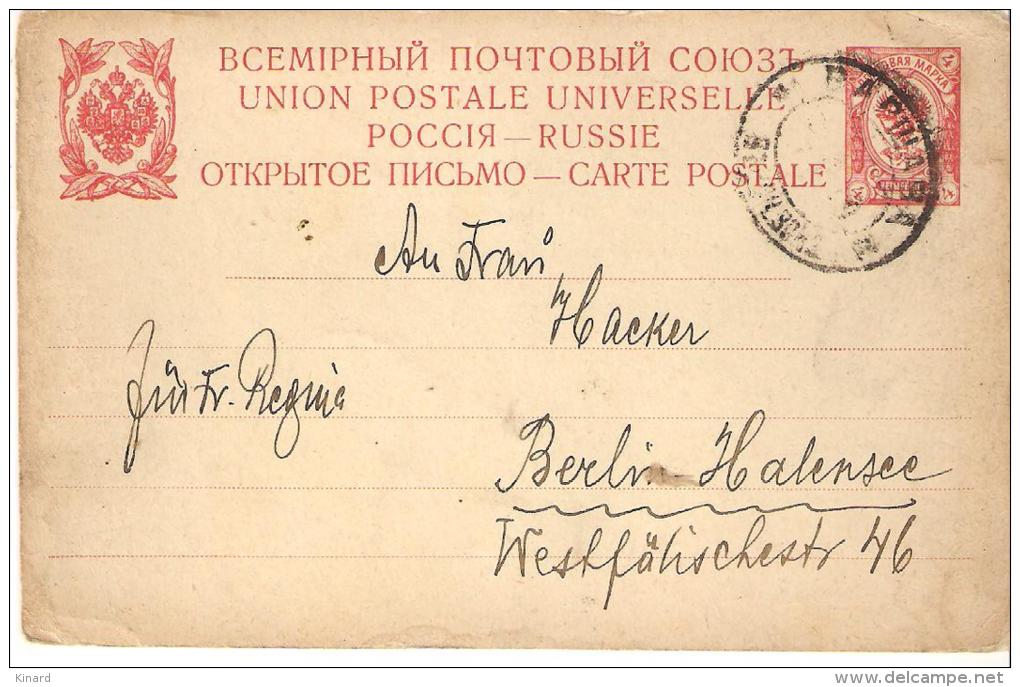 ВСЕМІРНЫЙ ПОЧТОВЫЙ СОЮЗЪ
UNION POSTALE UNIVERSELLE
РОССІЯ — RUSSIE
ОТКРЫТОЕ ПИСЬМО — CARTE POSTALE
МАРКА
4
4
ВАРШАВА
An Frau
Hacker
für Fr. Regina
Berlin-Halensee
Westfälischestr 46
Kinard
www.delcampe.net